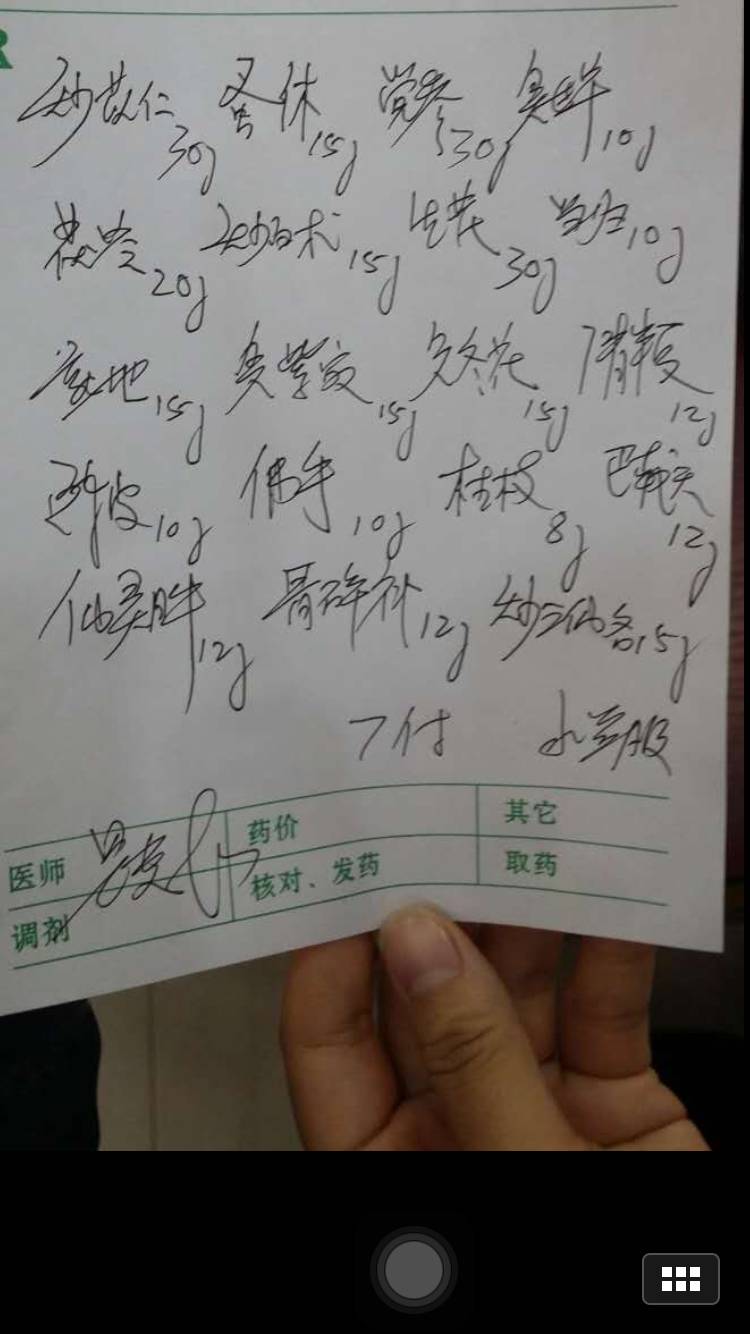 R
炒苡仁30g 蚤休15g 党参30g 10g
茯苓20g 炒白术15g 生芪30g 当归10g
15g 炙紫菀15g 炙冬花15g 12g
陈皮10g 佛手10g 桂枝8g 巴戟天12g
仙灵脾12g 骨碎补12g 炒三仙各15g
7付 水煎服
医师 药价 其它
调剂 核对、发药 取药